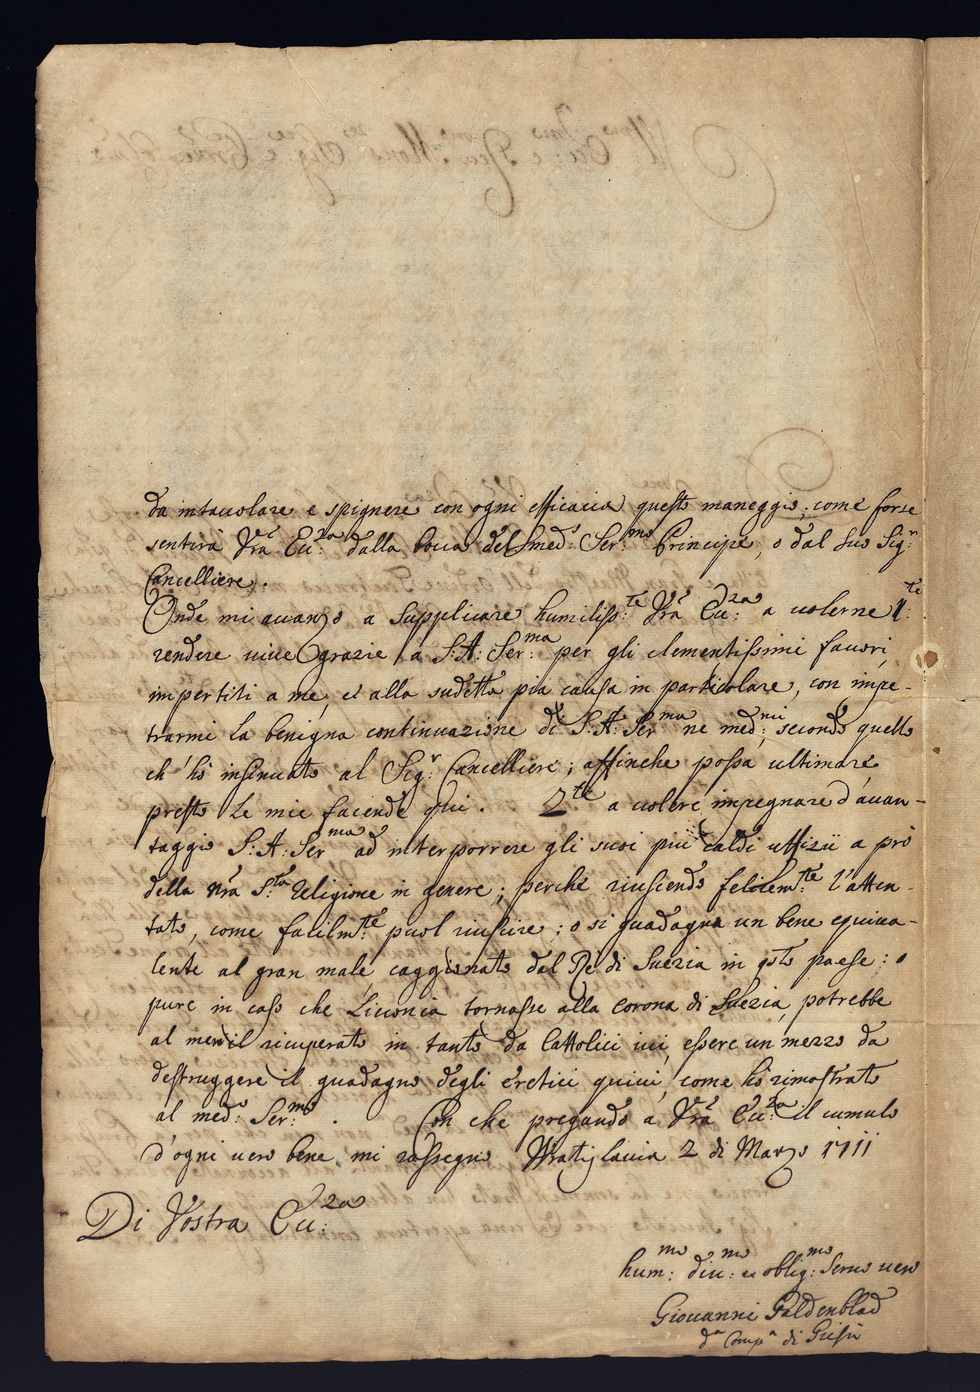 da intavolare e spignere con ogni efficacia questo maneggio; come forse
sentirà Vrã Ecc:za dalla bocca del med:o Ser:mo Principe, o dal suo Sig:r
Cancelliere.
Onde mi avanzo a supplicare humiliss:te Vrã Ecc:za a volerne 1:te
rendere vive grazie a S:A: Ser:ma per gli clementissimi favori,
impertiti a me, et alla sudetta pia causa in particolare, con impe-
trarmi la benigna continuazione di S:A: Ser:ma ne med:mi, secondo quello
ch'hò insinuato al Sig:r Cancelliere; affinche possa ultimare
presto le mie faciende qui. 2te a volere impegnare d'avan-
taggio S:A: Ser:ma ad interporrere gli suoi più caldi uffizii a prò
della nrã S:ta Religione in genere; perchè riuscendo felicem:te l'atten-
tato, come facilm:te puol riuscire; o si guadagna un bene equiva-
lente al gran male, caggionato dal Rè di Suezia in qsto paese: o
pure in caso che Livonia tornasse alla corona di Suezia, potrebbe
al meno il ricuperato in tanto da Cattolici ivi, essere un mezzo da
destruggere il guadagno degli eretici quivi, come hò rimostrato
al med:o Ser:mo. Con che pregando à Vrã Ecc:za il cumulo
d'ogni vero bene, mi rassegno Wratislavia 2 di Marzo 1711
Di Vostra Ecc:za
hum:mo div:mo et oblig:mo Servo vero
Giovanni Galdenblad
d'a Comp'a di Giesù